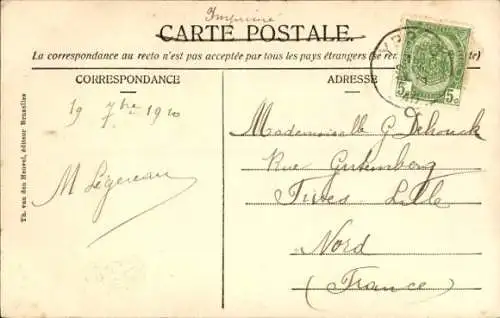 Imprimé
CARTE POSTALE.
La correspondance au recto n'est pas acceptée par tous les pays étrangers (Se te)
CORRESPONDANCE
ADRESSE
19 7bre 1910
M Légereau
Mademoiselle G Dehouck
Rue Gutemberg
Fives Lille
Nord
(France)
Th. van den Heuvel, éditeur Bruxelles
YPR
5c 5c